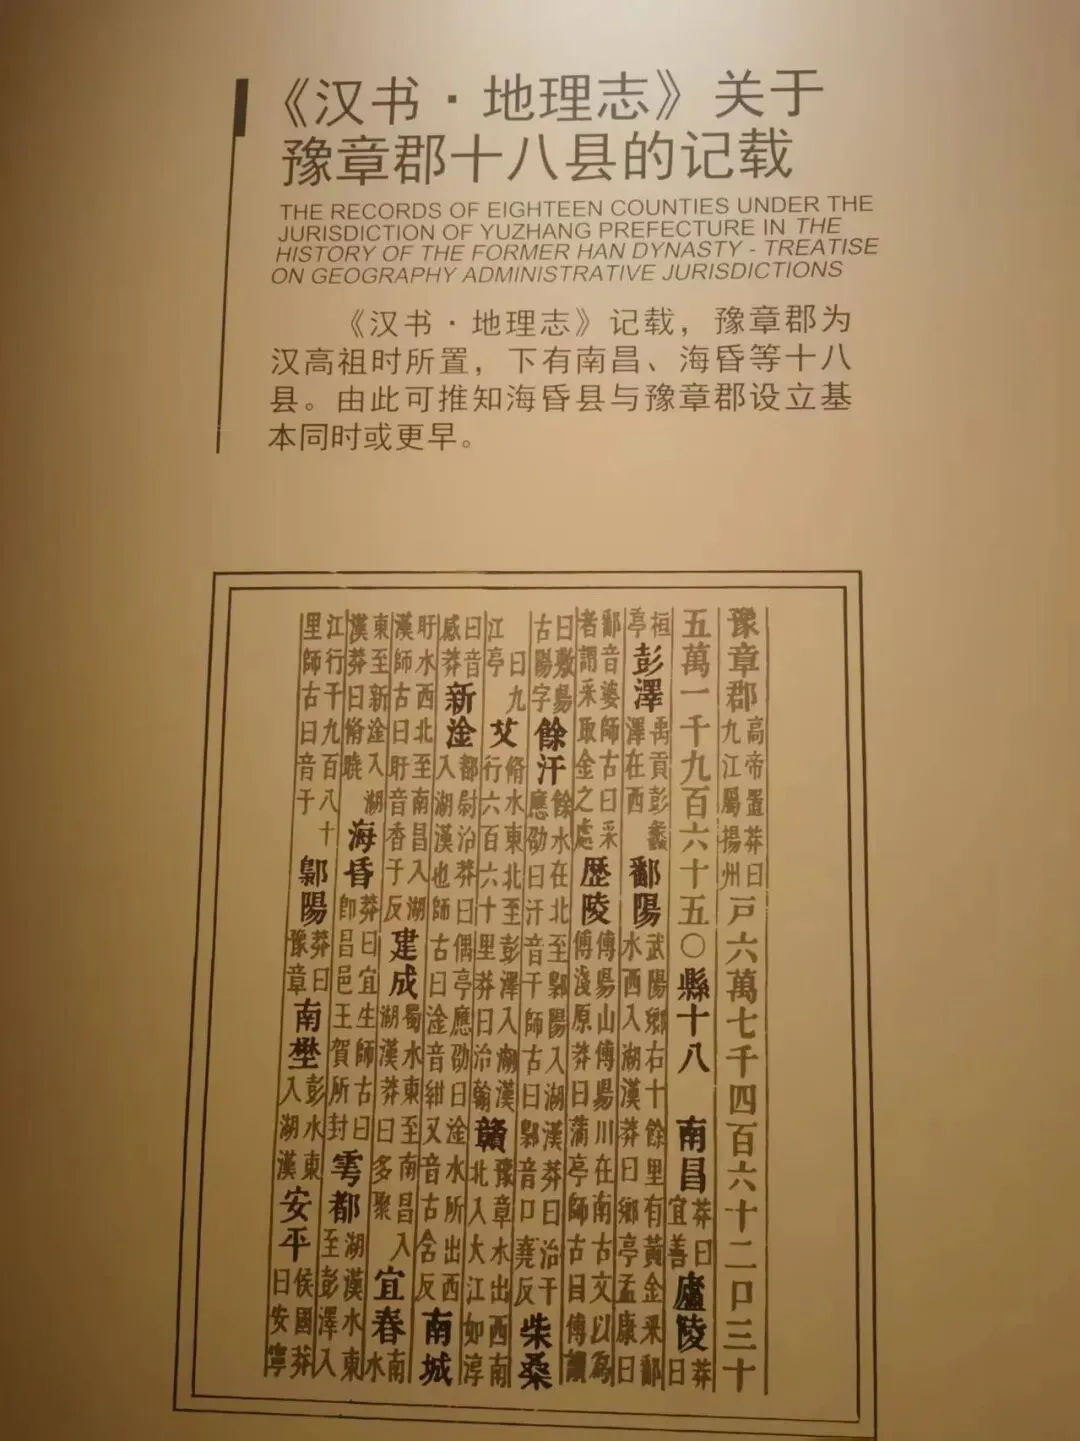 《汉书·地理志》关于
豫章郡十八县的记载
THE RECORDS OF EIGHTEEN COUNTIES UNDER THE
JURISDICTION OF YUZHANG PREFECTURE IN THE
HISTORY OF THE FORMER HAN DYNASTY - TREATISE
ON GEOGRAPHY ADMINISTRATIVE JURISDICTIONS
《汉书·地理志》记载，豫章郡为
汉高祖时所置，下有南昌、海昏等十八
县。由此可推知海昏县与豫章郡设立基
本同时或更早。
豫章郡高帝置莽曰九江屬揚州戸六萬七千四百六十二口三十
五萬一千九百六十五○縣十八 南昌莽曰宜善廬陵莽曰
桓亭彭澤禹貢彭蠡澤在西鄱陽武陽鄉右十餘里有黃金采鄱水西入湖漢莽曰鄉亭孟康曰
鄱音婆師古曰采者謂采取金之處歷陵傅昜山傅昜川在南古文以為傅淺原莽曰蒲亭師古曰傅讀
曰敷昜古陽字餘汗餘水在北至鄡陽入湖漢莽曰治干應劭曰汗音干師古曰鄡音口堯反柴桑
曰九江亭艾脩水東北至彭澤入湖漢行六百六十里莽曰治翰贛豫章水出西南北入大江如淳
曰音感莽新淦都尉治莽曰偶亭應劭曰淦水所出西入湖漢也師古曰淦音紺又音古含反南城
盱水西北至南昌入湖漢師古曰盱音香于反建成蜀水東至南昌入湖漢莽曰多聚宜春南水
東至新淦入湖漢莽曰脩曉海昏莽曰宜生師古曰即昌邑王賀所封雩都湖漢水東至彭澤入
江行千九百八十里師古曰音于鄡陽莽曰豫章南壄彭水東入湖漢安平侯國莽曰安寧